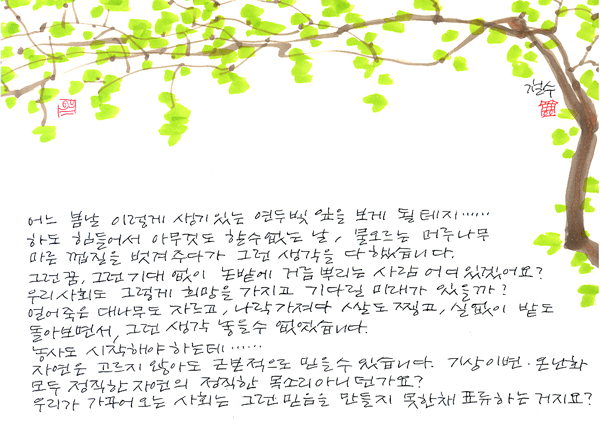 철수
어느 봄날 이렇게 생기있는 연두빛 잎을 보게 될테지……
하도 힘들어서 아무것도 할수없는 날, 물오르는 머루나무
마른 껍질을 벗겨주다가 그런 생각을 다 했습니다.
그런 꿈, 그런 기대 없이 논밭에 거름 뿌리는 사람 어여 있겠어요?
우리사회도 그렇게 희망을 가지고 기다릴 미래가 있을까?
얼어죽은 대나무도 자르고, 나락 가져다 쌀도 찧고, 실없이 밭도
돌아보면서, 그런 생각 놓을수 없었습니다.
농사도 시작해야 하는데……
자연은 고르지 않아도 근본적으로 믿을수 있습니다. 기상이변·온난화
모두 정직한 자연의 정직한 목소리아니던가요?
우리가 가꾸어 오는 사회는 그런 믿음을 만들지 못한채 표류하는 거지요?